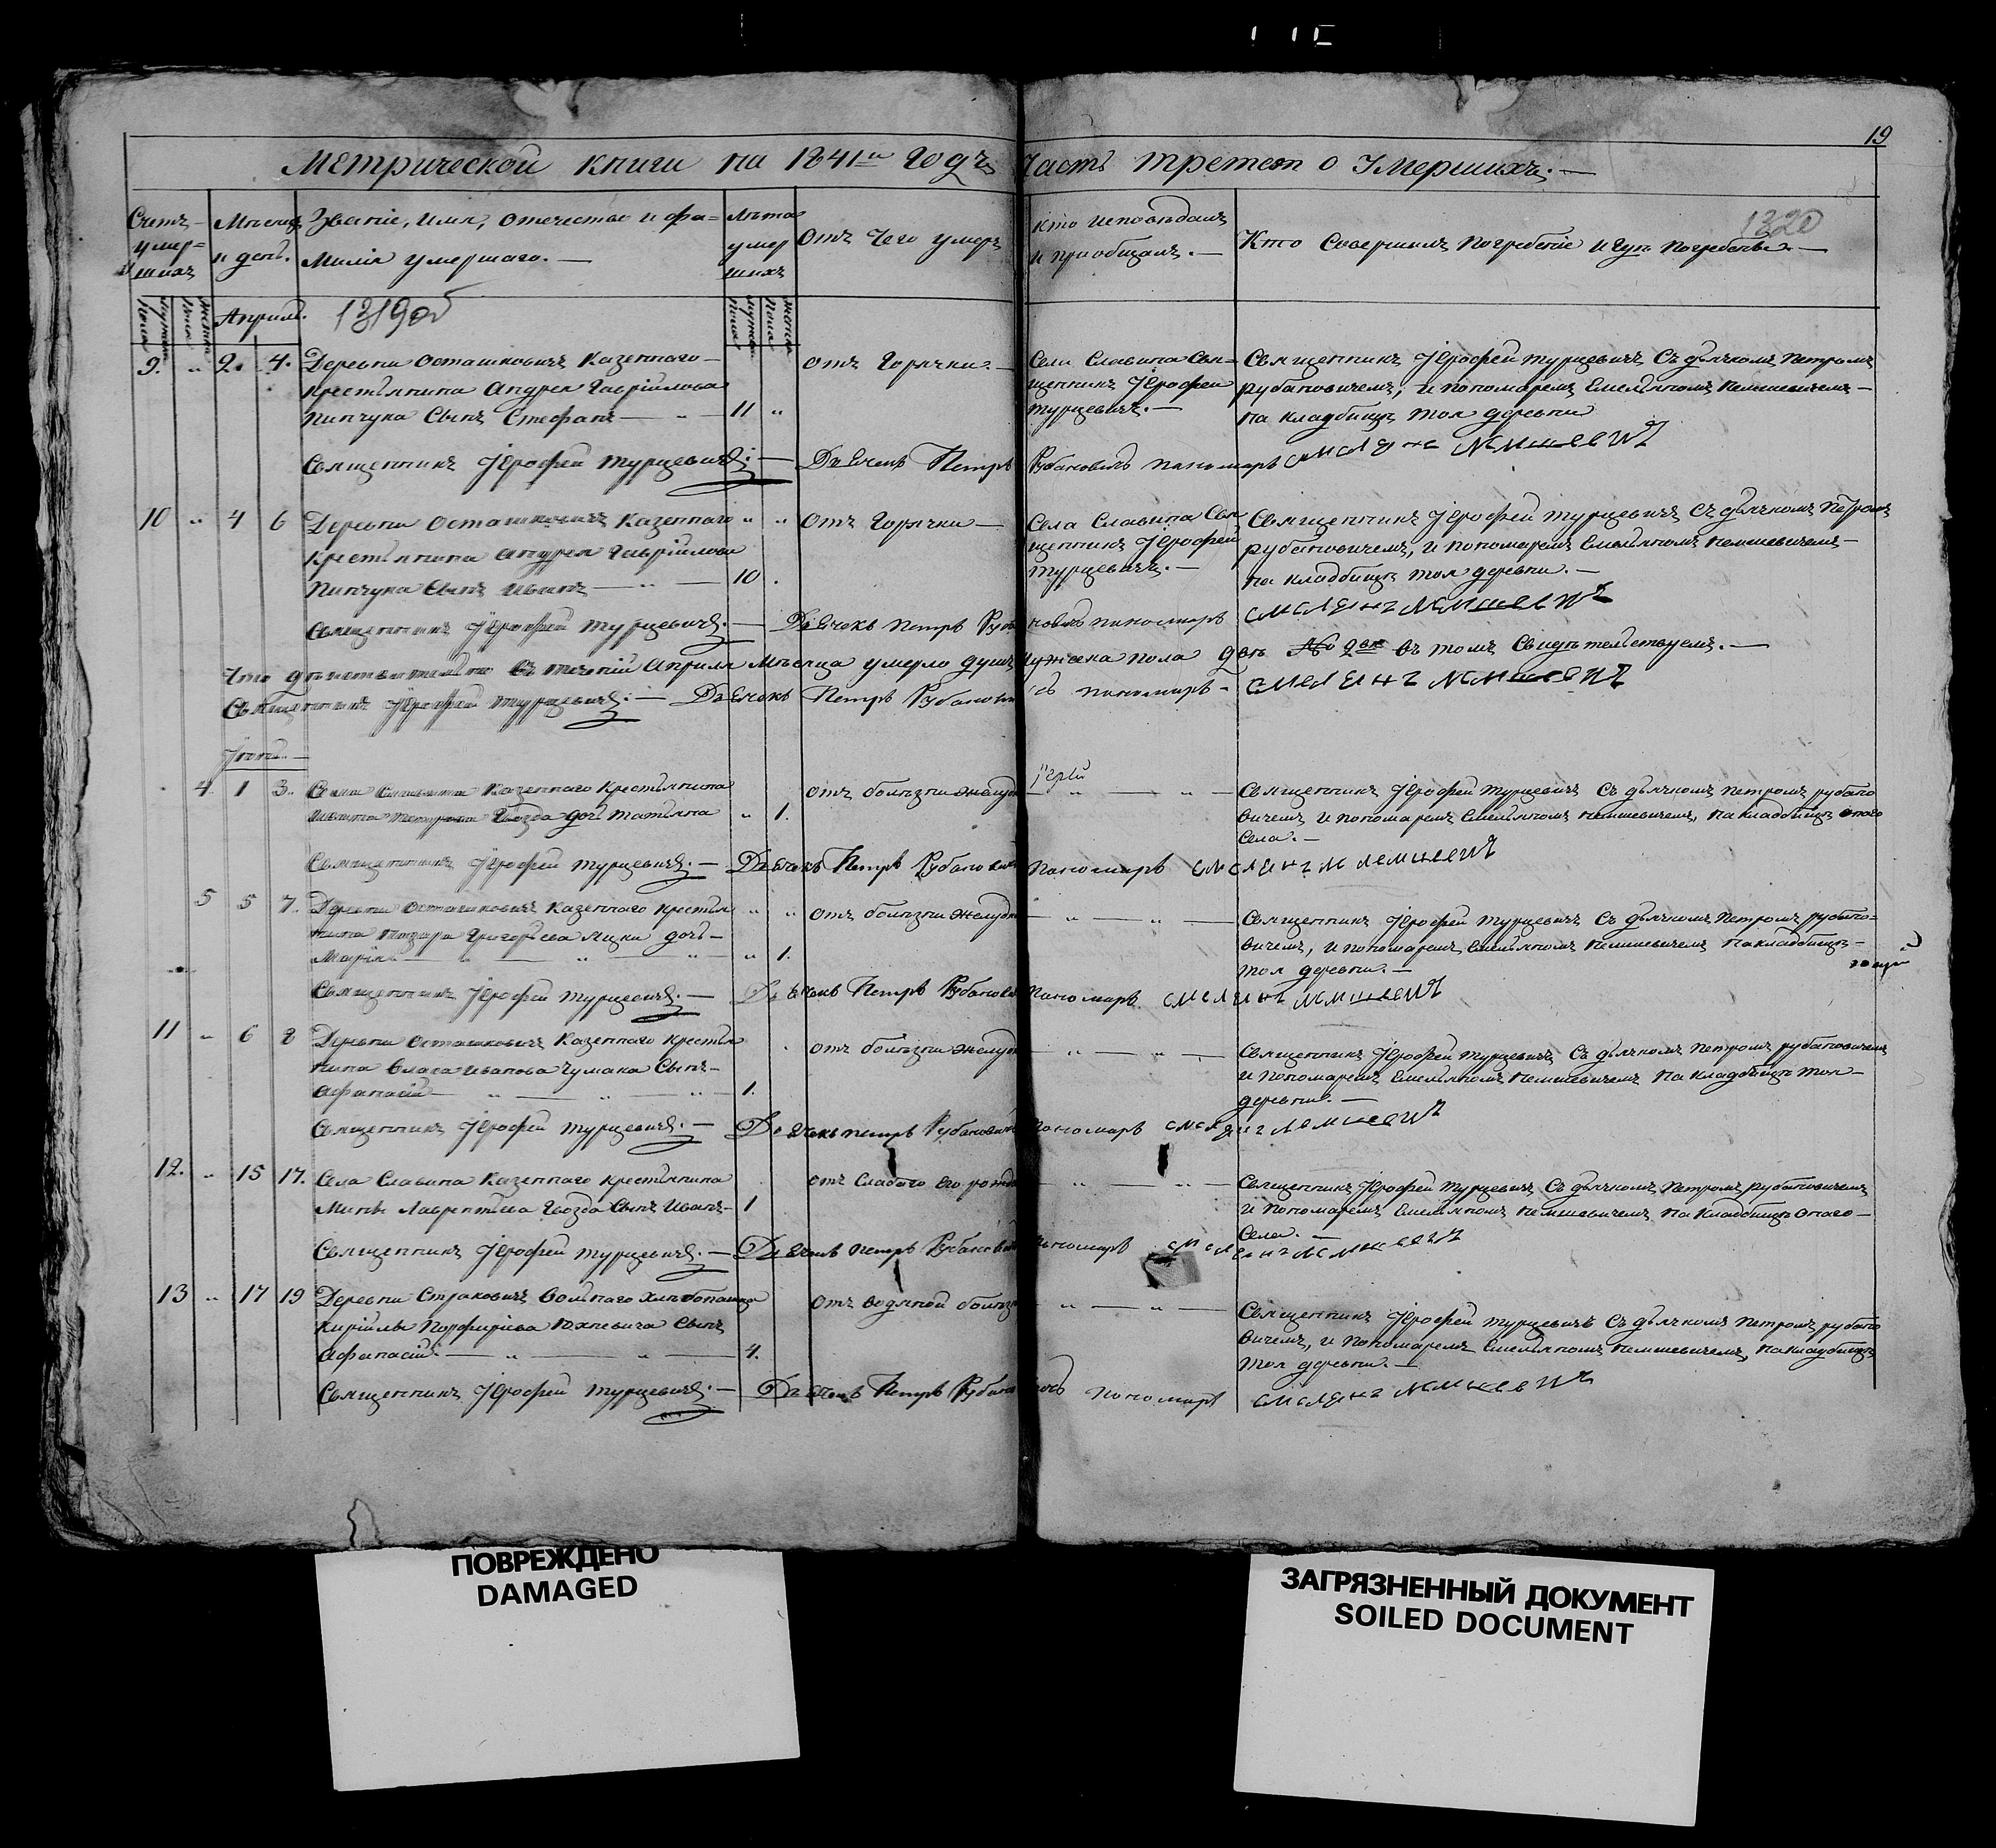 19
Метрической книги на 1841й годъ Часть третея о Умершихъ.
Счетъ умершихъ
Мѣсяцъ и день.
Званіе, имя, отечество и фамилія умершаго.
Лѣта умершихъ
Отъ чего умеръ
Кто исповѣдалъ и приобщалъ.
Кто совершилъ погребеніе и гдѣ погребены.
1320
Апрель.
1319об
9. 2. 4. Деревни Осташковичъ казеннаго
крестьянина Андрея Гаврійлова
Пинчука сынъ Стефанъ 11
отъ горячки.
Села Славина Священникъ Јерофей Турцевичъ.
Священникъ Јерофей Турцевичъ съ дьячкомъ Петромъ
Рубановичемъ, и пономаремъ Емельяномъ Немшевичемъ
на кладбищѣ тоя деревни
Священникъ Јерофей Турцевичъ. Дьячокъ Петръ Рубановичъ пономаръ Емельянъ Немшевичъ
10 4 6 Деревни Осташковичъ казеннаго
крестьянина Андрея Гаврійлова
Пинчука сынъ Иванъ 10
отъ горячки
Села Славина Священникъ Јерофей Турцевичъ.
Священникъ Јерофей Турцевичъ съ дьячкомъ Петромъ
Рубановичемъ, и пономаремъ Емельяномъ Немшевичемъ
на кладбищѣ тоя деревни.
Священникъ Јерофей Турцевичъ. Дьячокъ Петръ Рубановичъ пономаръ Емельянъ Немшевичъ
Что дѣйствительно въ теченій Апреля мѣсяца умерло душъ мужеска пола двѣ въ томъ свидѣтельствуемъ.
Священникъ Јерофей Турцевичъ. Дьячокъ Петръ Рубановичъ пономаръ Емельянъ Немшевичъ
4 1 3. Села Славина казеннаго крестьянина
Гвозда дочь Татьяна 1.
отъ болѣзни желуд
Священникъ Јерофей Турцевичъ съ дьячкомъ Петромъ Рубановичемъ и пономаремъ Емельяномъ Немшевичемъ, на кладбищѣ онаго
села.
Священникъ Јерофей Турцевичъ. Дьячокъ Петръ Рубановичъ пономаръ Емельянъ Немшевичъ
5 5 7. Деревни Осташковичъ казеннаго крестьянина Григорьева Яцки дочь
Марія 1.
отъ болѣзни желуд
Священникъ Јерофей Турцевичъ съ дьячкомъ Петромъ Рубановичемъ, и пономаремъ Емельяномъ Немшевичемъ на кладбищѣ
тоя деревни.
Священникъ Јерофей Турцевичъ. Дьячокъ Петръ Рубановичъ пономаръ Емельянъ Немшевичъ
11 6 8 Деревни Осташковичъ казеннаго крестьянина Власа Иванова Чумака сынъ
Афанасій 1.
отъ болѣзни желуд
Священникъ Јерофей Турцевичъ съ дьячкомъ Петромъ Рубановичемъ
и пономаремъ Емельяномъ Немшевичемъ на кладбищѣ тоя
деревни.
Священникъ Јерофей Турцевичъ. Дьячокъ Петръ Рубановичъ пономаръ Емельянъ Немшевичъ
12. 15 17. Села Славина казеннаго крестьянина
Мины Лаврентіева Гвозда сынъ Иванъ 1
отъ слабаго его рожде
Священникъ Јерофей Турцевичъ съ дьячкомъ Петромъ Рубановичемъ
и пономаремъ Емельяномъ Немшевичемъ на кладбищѣ онаго
села.
Священникъ Јерофей Турцевичъ. Дьячокъ Петръ Рубановичъ пономаръ Емельянъ Немшевичъ
13 17 19 Деревни Страковичъ вольнаго хлѣбопашца
Кирійлы Порфиріева Юхневича сынъ
Афанасій. 4.
отъ водяной болѣзн
Священникъ Јерофей Турцевичъ съ дьячкомъ Петромъ Рубановичемъ, и пономаремъ Емельяномъ Немшевичемъ, на кладбищѣ
тоя деревни.
Священникъ Јерофей Турцевичъ. Дьячокъ Петръ Рубановичъ пономаръ Емельянъ Немшевичъ
ПОВРЕЖДЕНО
DAMAGED
ЗАГРЯЗНЕННЫЙ ДОКУМЕНТ
SOILED DOCUMENT